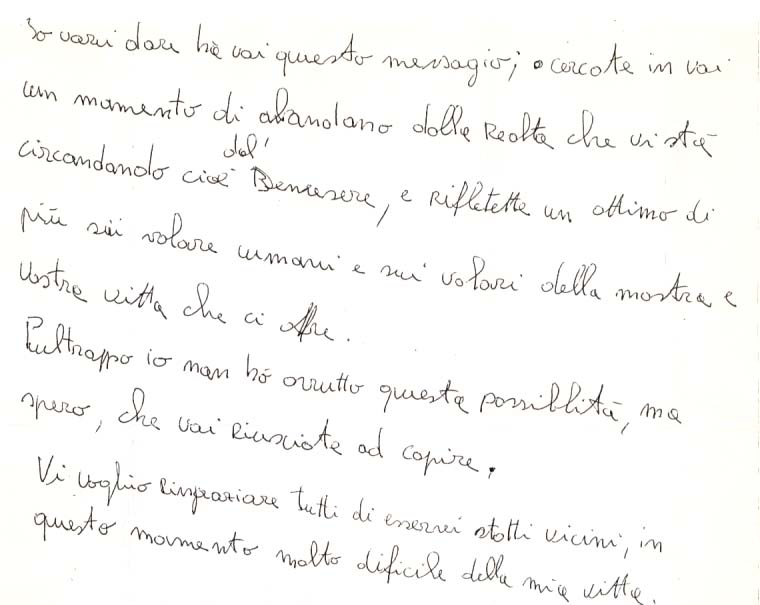 Io vorrei dare hà voi questo messagio; cercate in voi
um momento di abandano dalla Realtà che vi stà
circondando cioè del' Benessere, e Riflettette un attimo di
più sui valore umani e sui valori della mostra e
Vostra vitta che ci offre.
Pultrappo io non hò avutto questa possibilità, ma
spero, che voi Riusciate ad capire.
Vi voglio Ringraziare tutti di essermi statti vicini, in
questo momento molto dificile della mia vitta.